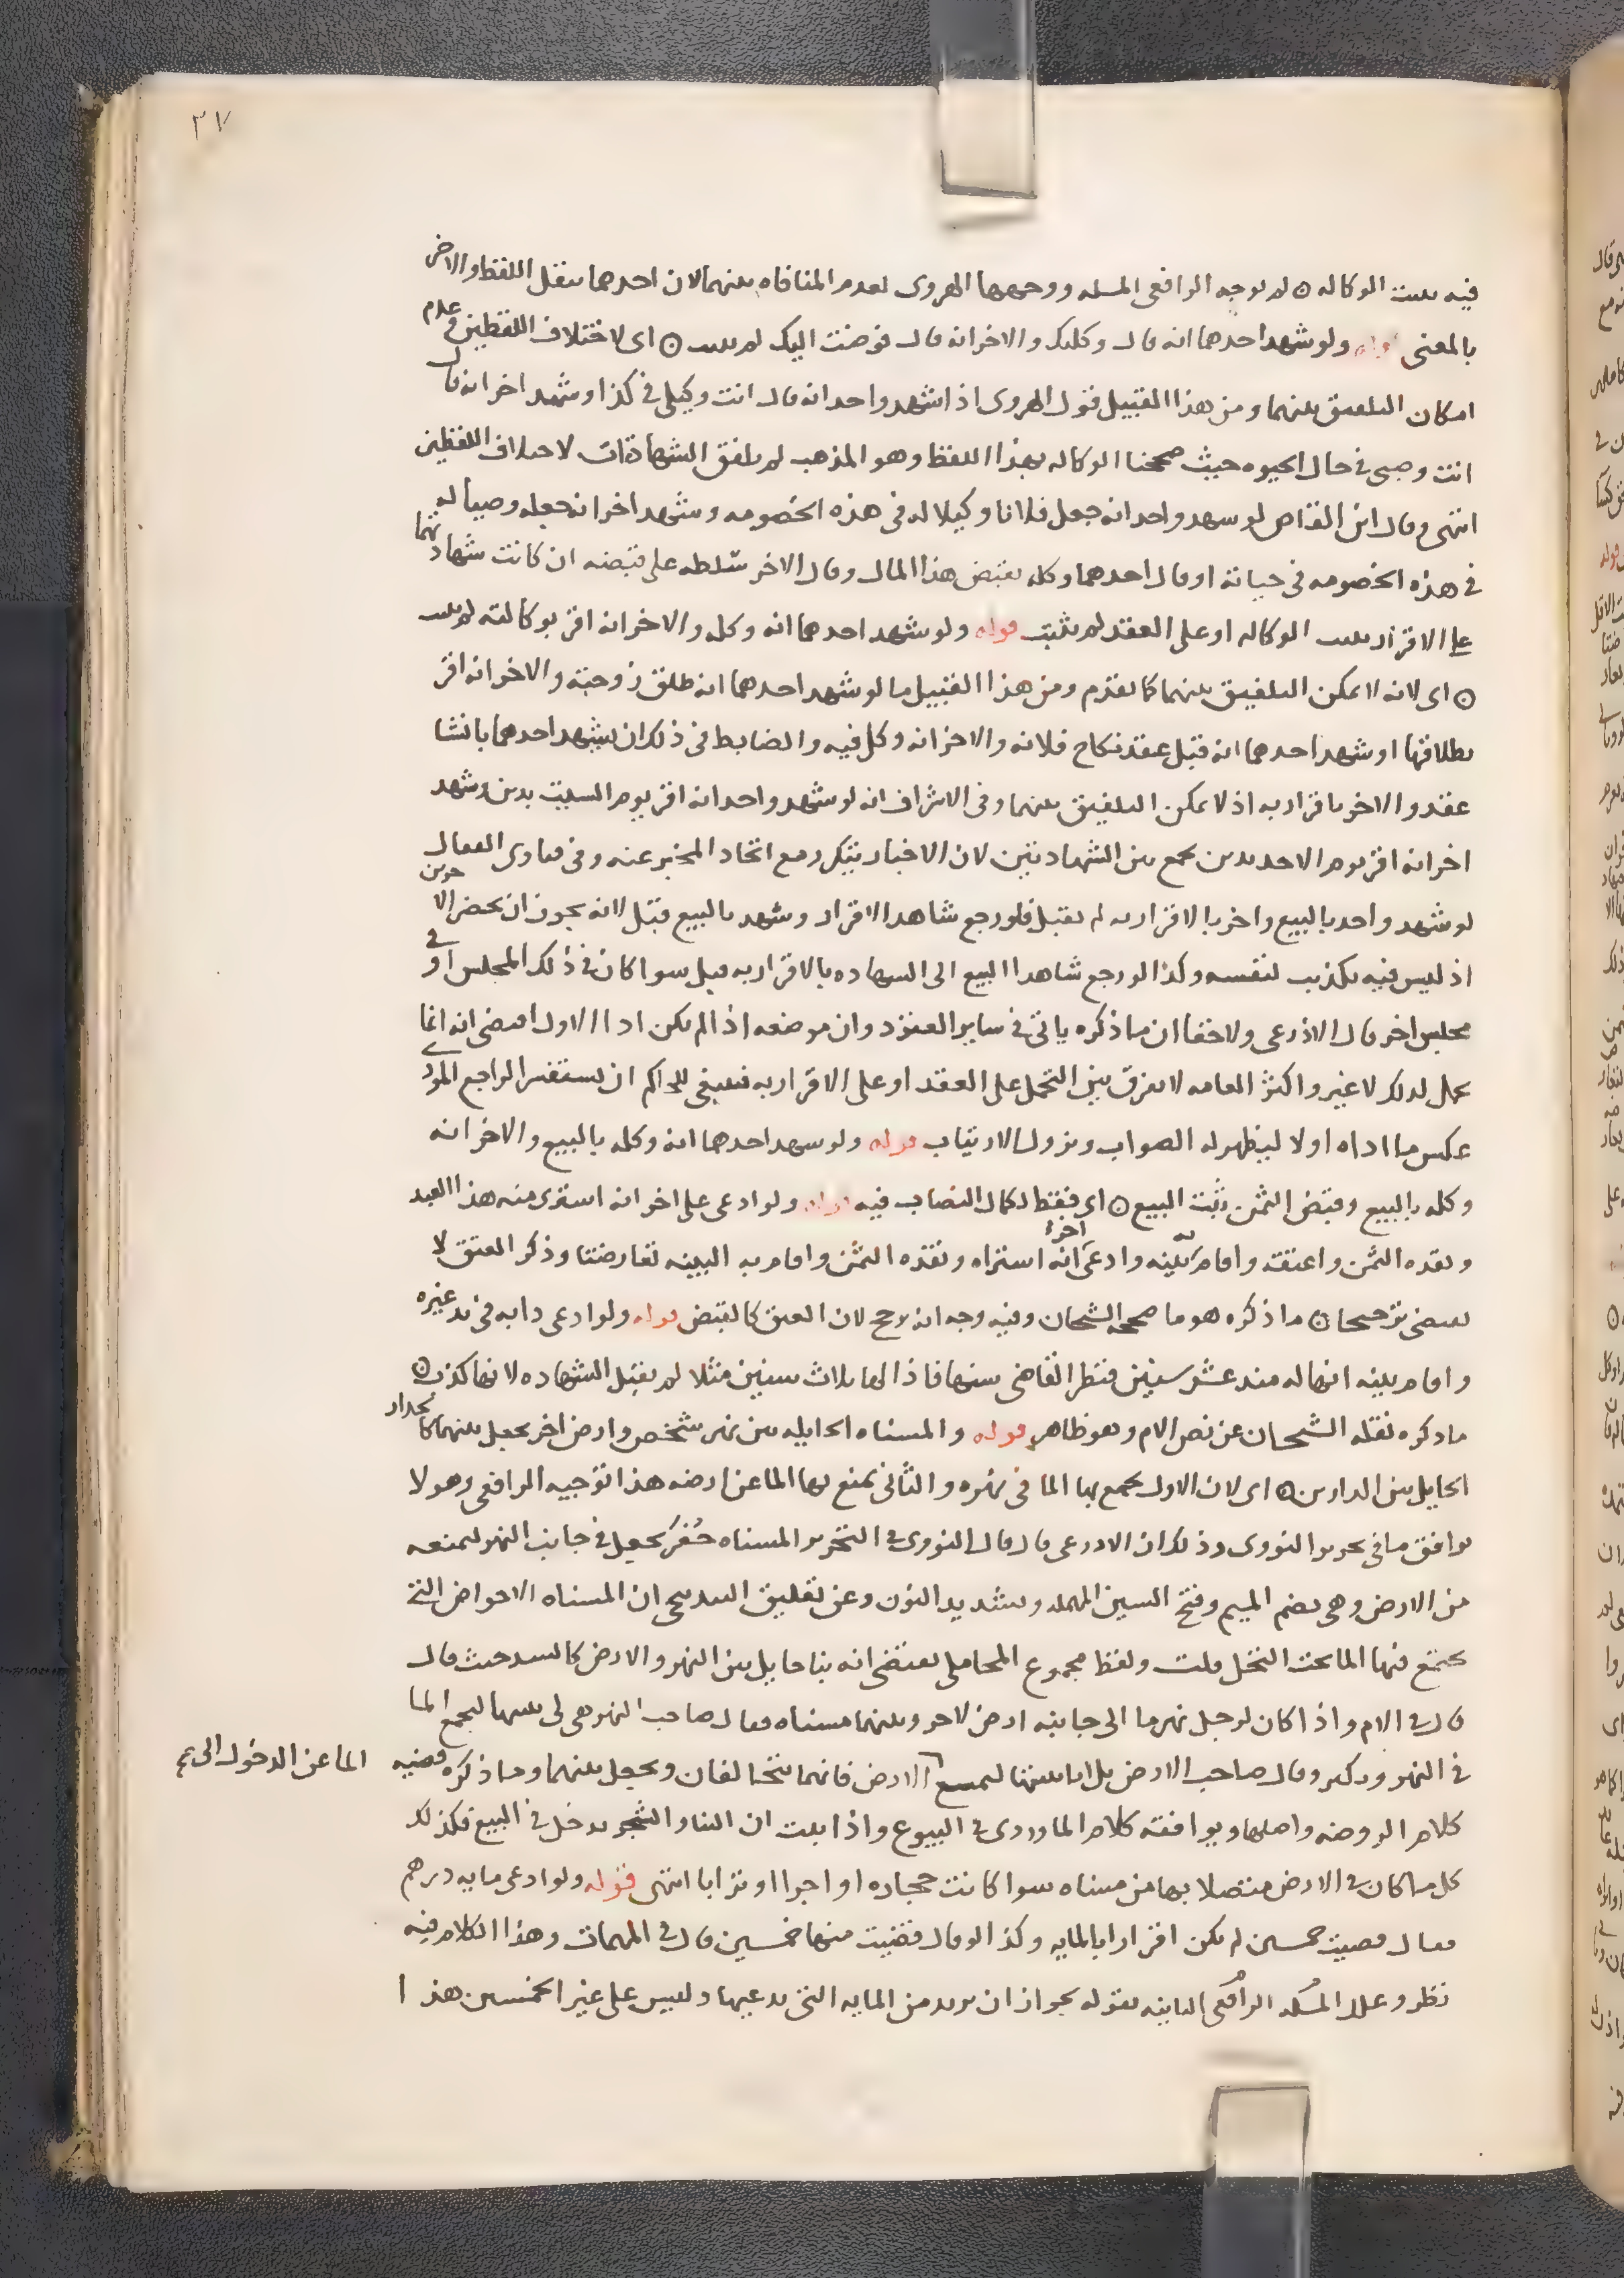 ٢٧
فيه ثبتت الوكاله ۞ لم يوجه الرافعى المسله ووجهها الهروى بعدم المنافاه بينهما لان احدهما ينقل اللفظ والاخر
بالمعنى قوله ولو شهد احدهما انه قال وكلتك والاخر انه قال فوضت اليك لم يثبت ۞ اى لاختلاف اللفظين وعدم
امكان التلفيق بينهما ومن هذا القبيل قول الهروى اذا شهد واحد انه قال انت وكيلى فى كذا وشهد اخر انه قال
انت وصيى فى حال الحيوه حيث صححنا الوكاله بهذا اللفظ وهو المذهب لم يلفق الشهادتان لاختلاف اللفظين
انتهى وقال ابن القاص لو شهد واحد انه جعل فلانا وكيلا له فى هذه الخصومه وشهد اخر انه جعله وصيا له
فى هذه الخصومه فى حياته او قال احدهما وكله بقبض هذا المال وقال الاخر سلطه على قبضه ان كانت شهادتهما
على الاقرار ثبتت الوكاله او على العقد لم يثبت قوله ولو شهد احدهما انه وكله والاخر انه اقر بوكالته لم يثبت
۞ اى لانه لا يمكن التلفيق بينهما كما تقدم ومن هذا القبيل ما لو شهد احدهما انه طلق زوجته والاخر انه اقر
بطلاقها او شهد احدهما انه قبل عقد نكاح فلانه والاخر انه وكل فيه والضابط فى ذلك ان يشهد احدهما بانشا
عقد والاخر باقرار به اذ لا يمكن التلفيق بينهما وفى الاشراف انه لو شهد واحد انه اقر يوم السبت بدين وشهد
اخر انه اقر يوم الاحد بدين يجمع بين الشهادتين لان الاخبار يتكرر مع اتحاد المخبر عنه وفى فتاوى القفال
لو شهد واحد بالبيع واخر بالاقرار به لم يقبل فلو رجع شاهد الاقرار وشهد بالبيع قبل لانه يجوز ان يحضر الامرين
اذ ليس فيه تكذيب لنفسه وكذا لو رجع شاهد البيع الى الشهاده بالاقرار به قبل سوا كان فى ذلك المجلس او فى
مجلس اخر قال الاذرعى ولا خفا ان ما ذكره ياتى فى ساير العقود وان موضعه اذا لم يكن ادا الاول اقتضى انه انما
تحمل لذلك لا غير واكثر العامه لا يفرق بين التحمل على العقد او على الاقرار به فينبغى للحاكم ان يستفسر الراجع المودى
عكس ما اداه اولا ليظهر له الصواب ويزول الارتياب قوله ولو شهد احدهما انه وكله بالبيع والاخر انه
وكله بالبيع وقبض الثمن ثبت البيع ۞ اى فقط لكمال النصاب فيه قوله ولو ادعى على اخر انه اشترى منه هذا العبد
ونقده الثمن واعتقه واقام به بينه وادعى اخر انه اشتراه ونقده الثمن واقام به البينه تعارضتا وذكر العتق لا
يقتضى ترجيحا ۞ ما ذكره هو ما صححه الشيخان وفيه وجه انه يرجح لان العتق كالقبض قوله ولو ادعى دابه فى يد غيره
واقام بينه انها له منذ عشر سنين فنظر القاضى سنها فاذا لها ثلاث سنين مثلا لم يقبل الشهاده لانها كذب ۞
ما ذكره نقله الشيخان عن نص الام وهو ظاهر قوله والمسناه الحايله بين نهر شخص وارض اخر يجعل بينهما كالجدار
الحايل بين الدارين ۞ اى لان الاول يجمع بها الما فى نهره والثانى يمنع بها الما عن ارضه هذا توجيه الرافعى وهو لا
يوافق ما فى تحرير النووى وذلك ان الاذرعى قال قال النووى فى التحرير المسناه حُفَر يجعل فى جانب النهر ليمنعه
من الارض وهى بضم الميم وفتح السين المهمله وتشديد النون وعن تعليق البندنيجى ان المسناه الاحواض التى
يجتمع فيها الما تحت النخل قلت ولفظ مجموع المحاملى يقتضى انه بنا حايل بين النهر والارض كالسد حيث قال
قال فى الام واذا كان لرجل نهر ما الى جانبه ارض لاخر وبينهما مسناه فقال صاحب النهر هى لى بنيتها ليجمع الما
فى النهر ويكثر وقال صاحب الارض بل انا بنيتها ليمنع الما عن الدخول الى الارض فانهما يتحالفان ويجعل بينهما وما ذكره قضيه
كلام الروضه واصلها ويوافقه كلام الماوردى فى البيوع واذا ثبت ان البنا والشجر يدخل فى البيع فكذلك
كل ما كان فى الارض متصلا بها من مسناه سوا كانت حجاره او اجرا او ترابا انتهى قوله ولو ادعى مايه درهم
فقال قضيت خمسين لم يكن اقرارا بالمايه وكذا لو قال قضيت منها خمسين قال فى المهمات وهذا الكلام فيه
نظر وعلل المسله الرافعى الثانيه بقوله لجواز ان يريد من المايه التى يدعيها وليس على غير الخمسين هذا